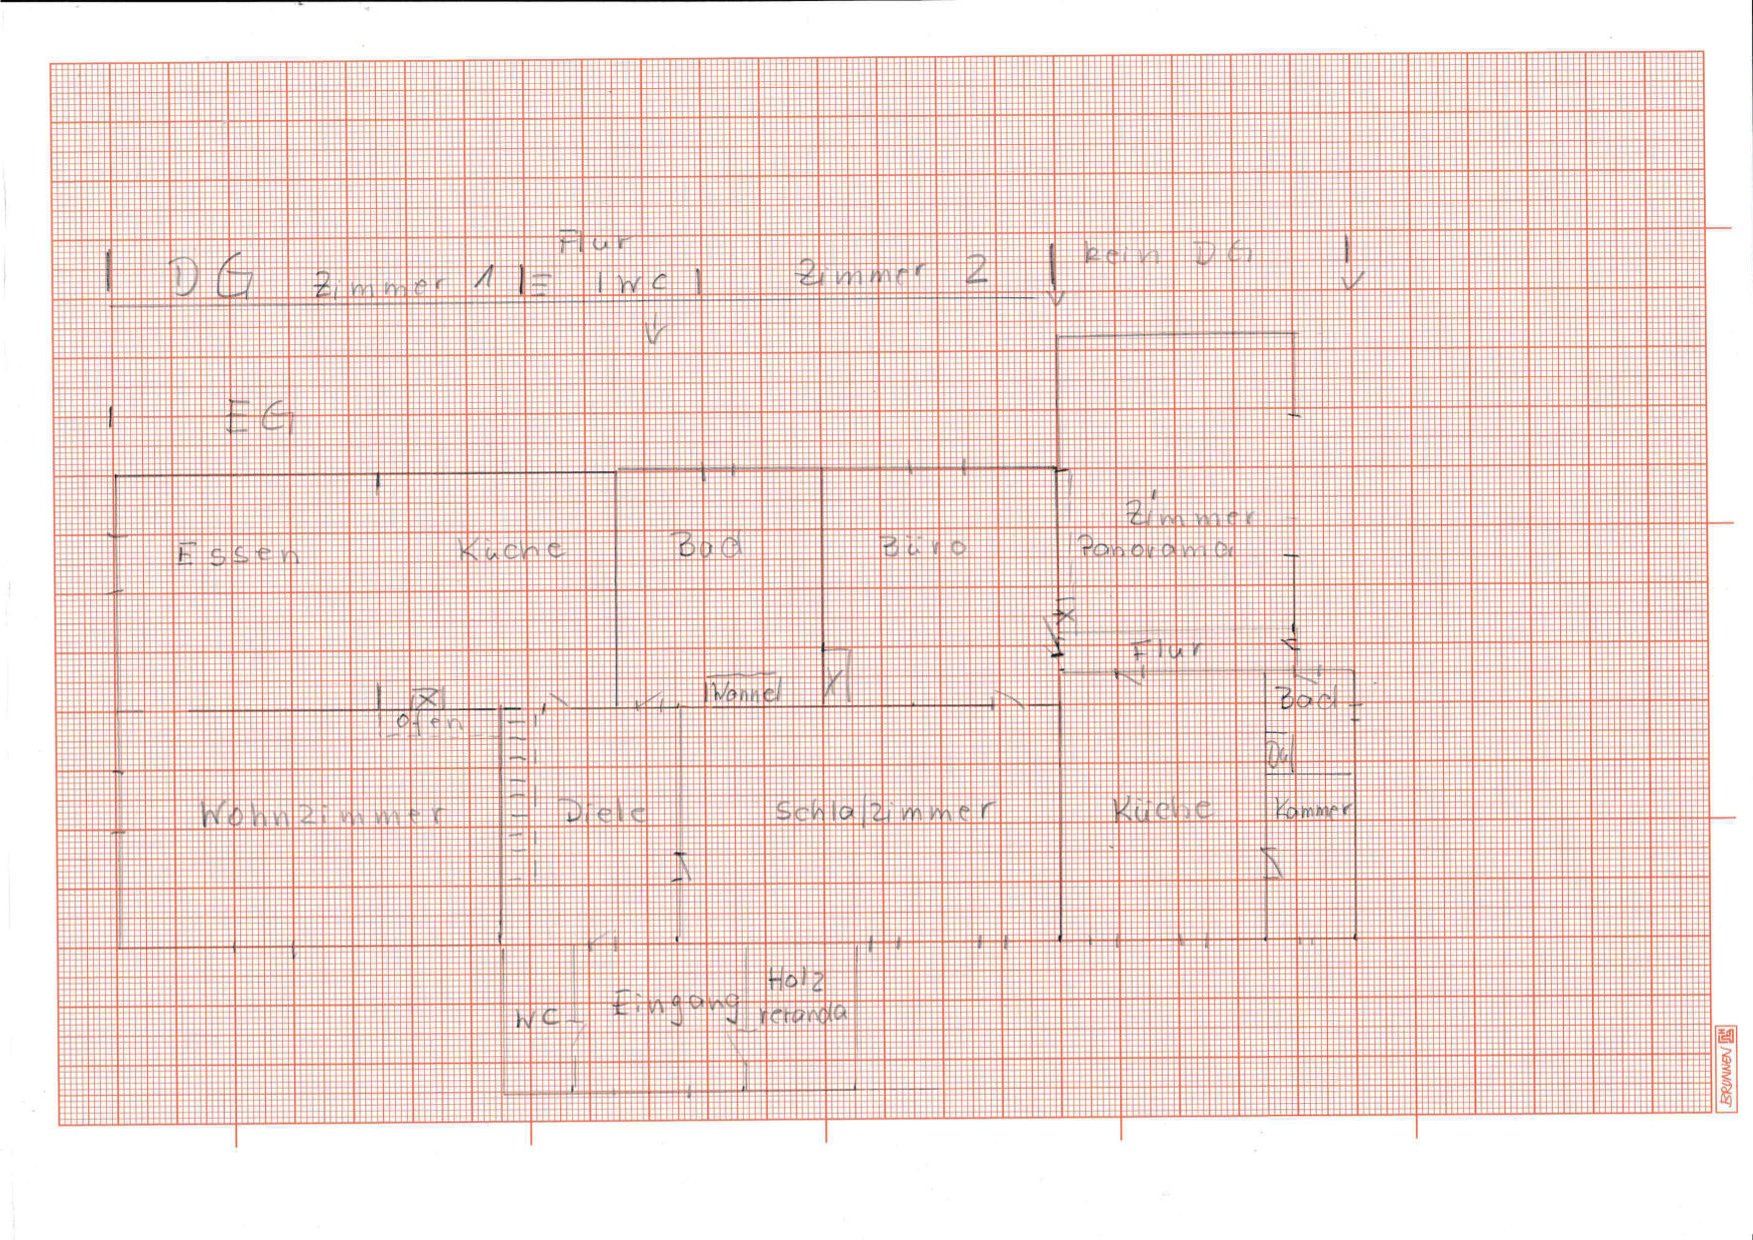 Flur
DG Zimmer 1 WC Zimmer 2 kein DG
EG
Zimmer
Panorama
Essen Küche Bad Büro
Flur
Wanne
Ofen
Bad
Du
Wohnzimmer Diele Schlafzimmer Küche Kammer
Holz
WC Eingang veranda
BRUNNEN